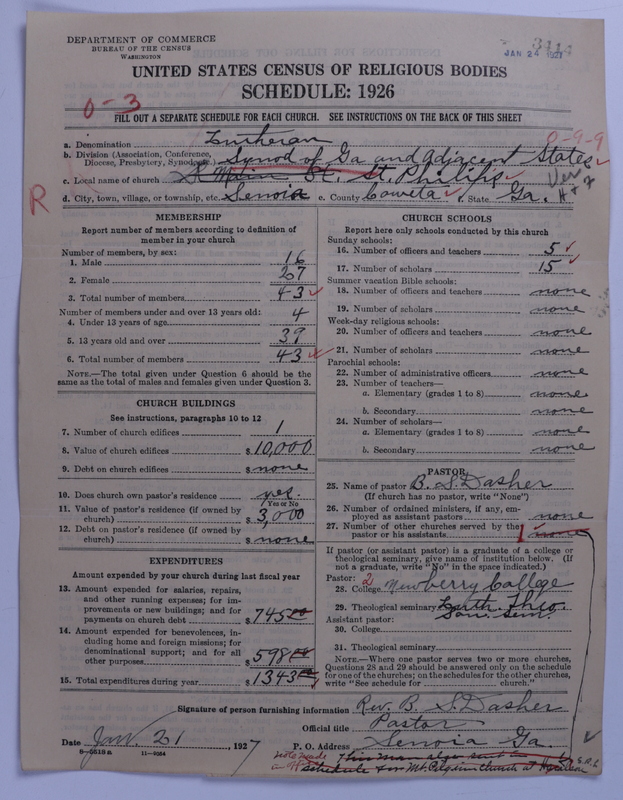 DEPARTMENT OF COMMERCE
BUREAU OF THE CENSUS
WASHINGTON
JAN 24 1927
3414
UNITED STATES CENSUS OF RELIGIOUS BODIES
SCHEDULE: 1926
0-3
FILL OUT A SEPARATE SCHEDULE FOR EACH CHURCH. SEE INSTRUCTIONS ON THE BACK OF THIS SHEET
a. Denomination Lutheran
0-9-9
b. Division (Association, Conference, Diocese, Presbytery, Synod, etc.) Synod of Ga and Adjacent States
c. Local name of church St. Philips
R
d. City, town, village, or township, etc. Senoia e. County Coweta f. State Ga.
MEMBERSHIP
Report number of members according to definition of
member in your church
Number of members, by sex:
1. Male 16
2. Female 27
3. Total number of members 43
Number of members under and over 13 years old:
4. Under 13 years of age 4
5. 13 years old and over 39
6. Total number of members 43
NOTE.—The total given under Question 6 should be the
same as the total of males and females given under Question 3.
CHURCH BUILDINGS
See instructions, paragraphs 10 to 12
7. Number of church edifices 1
8. Value of church edifices $ 10,000
9. Debt on church edifices $ none
10. Does church own pastor's residence yes
Yes or No
11. Value of pastor's residence (if owned by
church) $ 3,000
12. Debt on pastor's residence (if owned by
church) $ none
EXPENDITURES
Amount expended by your church during last fiscal year
13. Amount expended for salaries, repairs,
and other running expenses; for im-
provements or new buildings; and for
payments on church debt $ 745.00
14. Amount expended for benevolences, in-
cluding home and foreign missions; for
denominational support; and for all
other purposes $ 598
15. Total expenditures during year $ 1343
CHURCH SCHOOLS
Report here only schools conducted by this church
Sunday schools:
16. Number of officers and teachers 5
17. Number of scholars 15
Summer vacation Bible schools:
18. Number of officers and teachers none
19. Number of scholars none
Week-day religious schools:
20. Number of officers and teachers none
21. Number of scholars none
Parochial schools:
22. Number of administrative officers none
23. Number of teachers—
a. Elementary (grades 1 to 8) none
b. Secondary none
24. Number of scholars—
a. Elementary (grades 1 to 8) none
b. Secondary none
PASTOR
25. Name of pastor B. S. Dasher
(If church has no pastor, write "None")
26. Number of ordained ministers, if any, em-
ployed as assistant pastors none
27. Number of other churches served by the
pastor or his assistants 1 none
If pastor (or assistant pastor) is a graduate of a college or
theological seminary, give name of institution below. (If
not a graduate, write "No" in the space indicated.)
Pastor: 2
28. College Newberry College
29. Theological seminary Luth. Theo.
Sou. Sem.
Assistant pastor:
30. College
31. Theological seminary
NOTE.—Where one pastor serves two or more churches,
Questions 28 and 29 should be answered only on the schedule
for one of the churches; on the schedules for the other churches,
write "See schedule for church."
Signature of person furnishing information Rev. B. S. Dasher
Official title Pastor
Date Jan. 21, 1927 P. O. Address Senoia Ga.
8—5518a 11—9054
note made
schedule for Mt. Pilgrim Church at Haralson